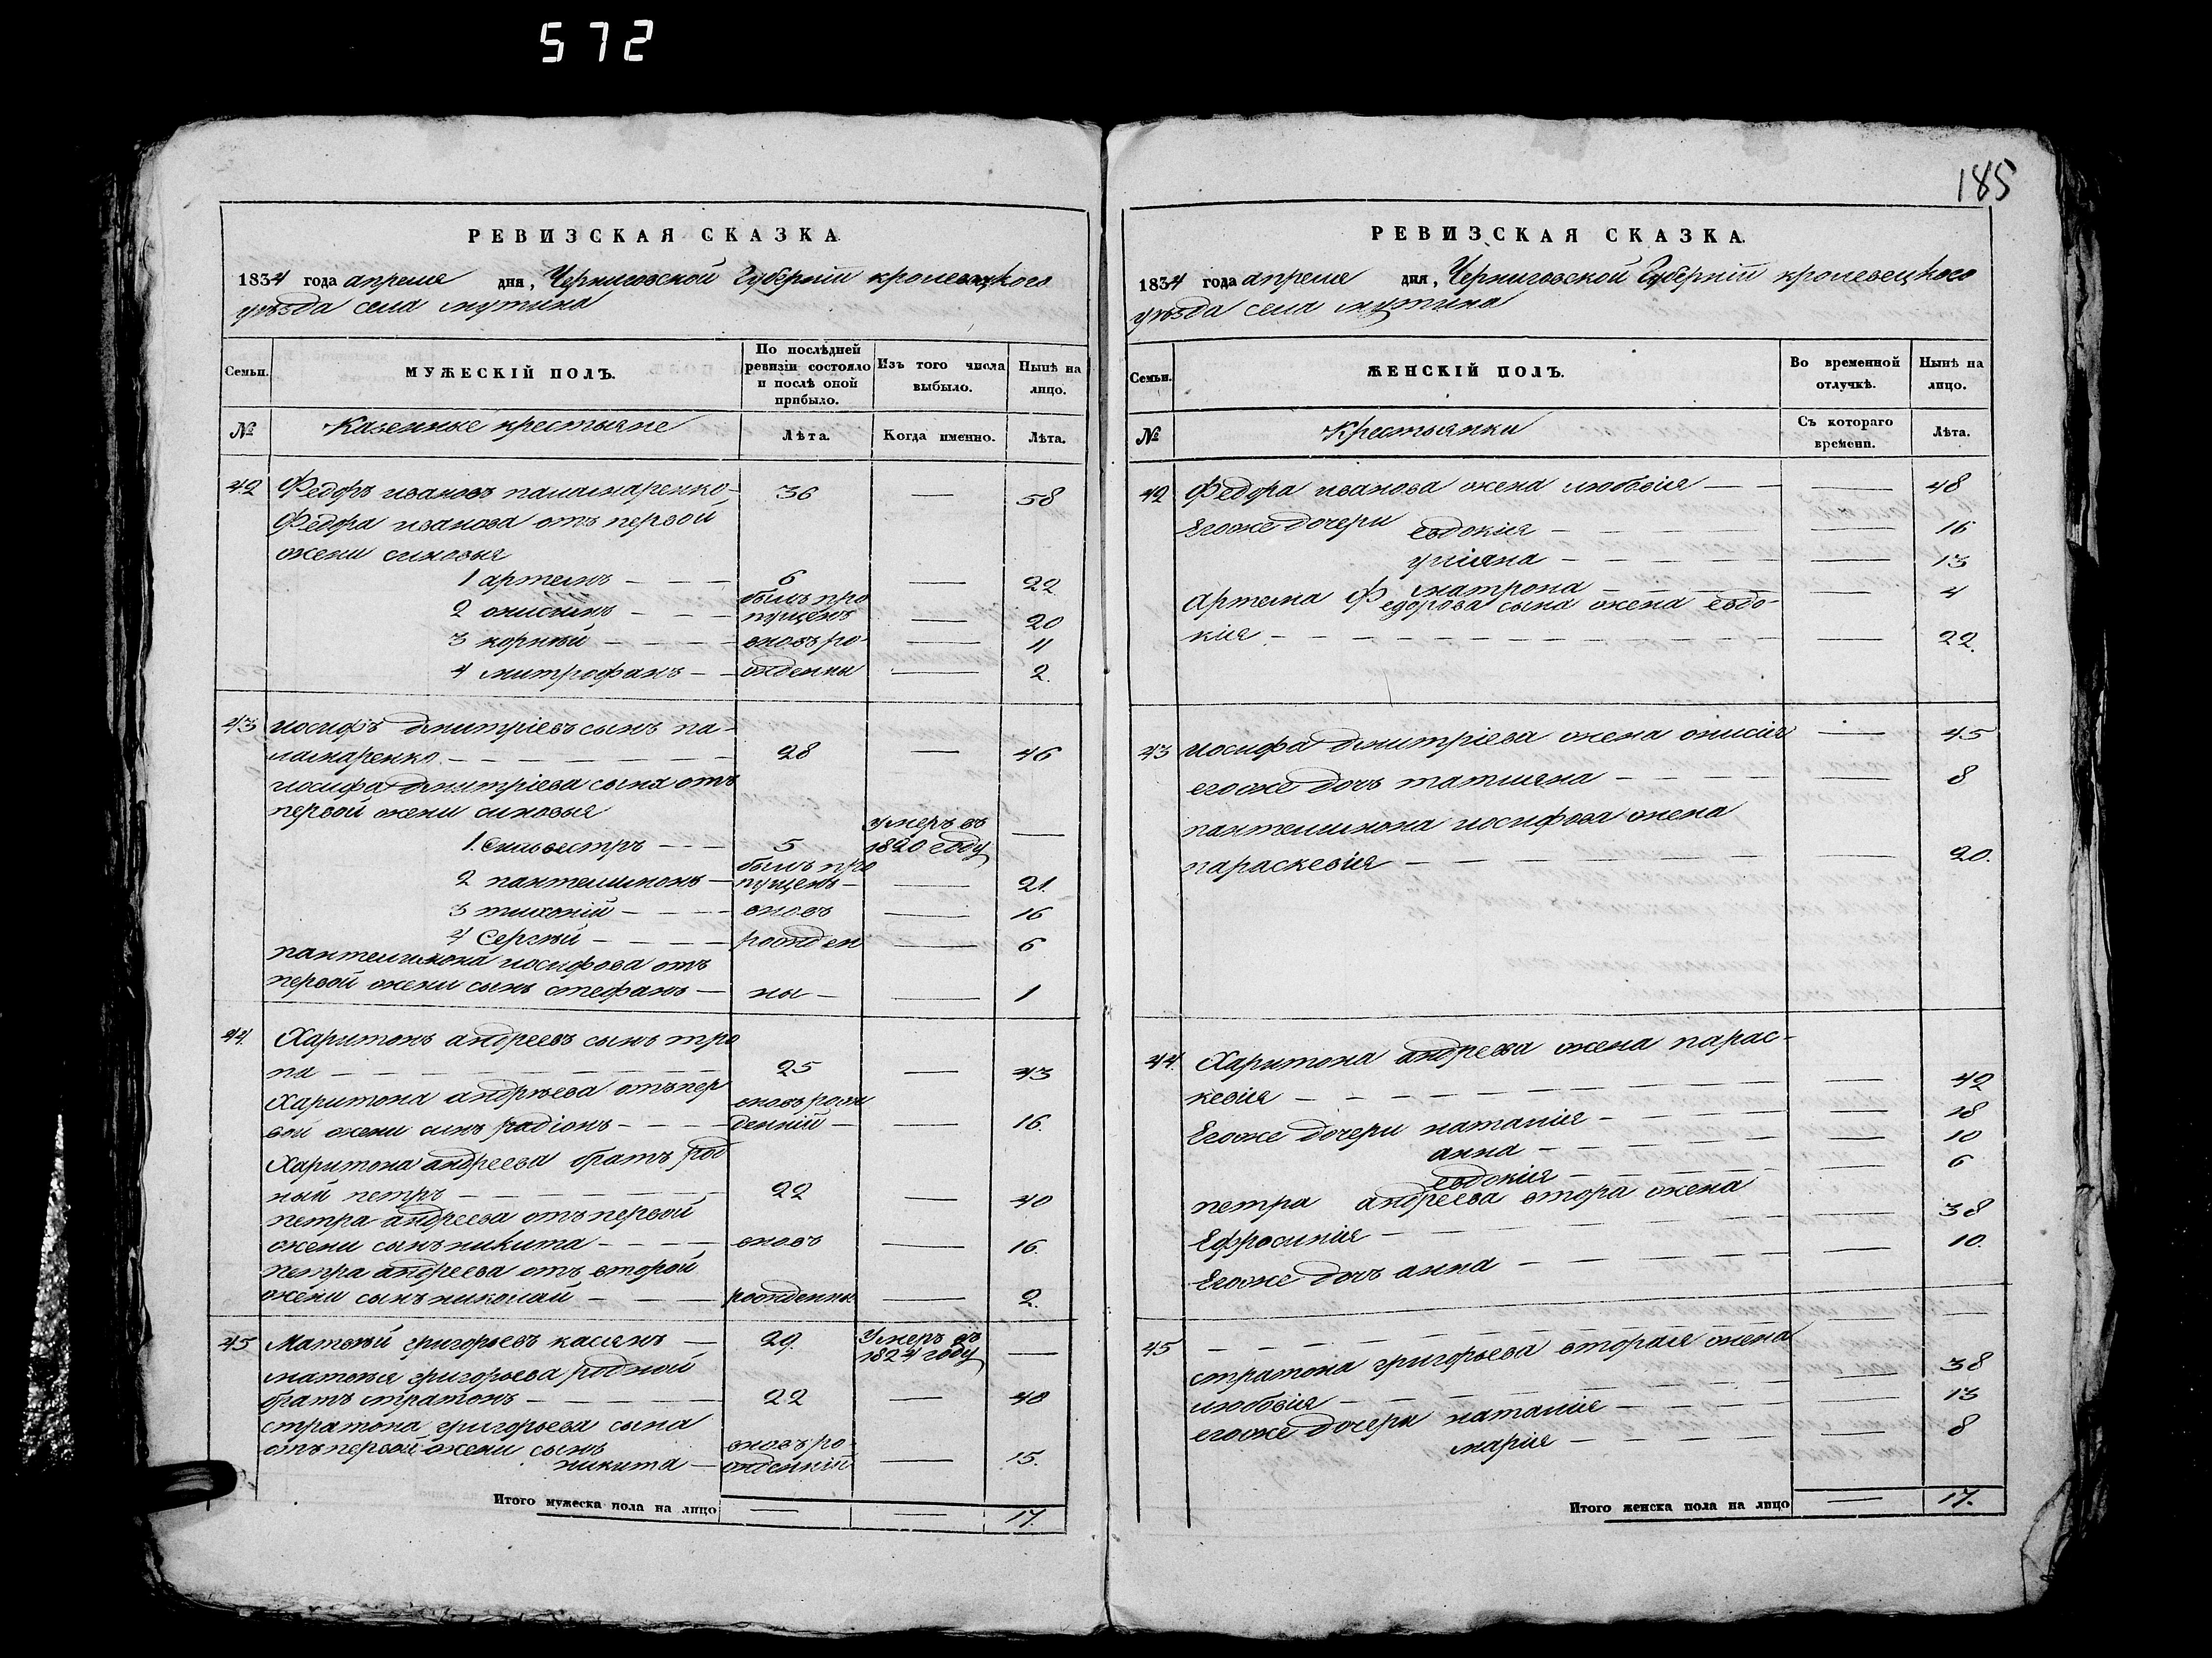 572
185
РЕВИЗСКАЯ СКАЗКА.
1834 года апреля дня, Черниговской Губерніи кролевецкого
уезда села мутина
Семьи.
МУЖЕСКІЙ ПОЛЪ.
По послѣдней
ревизіи состояло
и послѣ оной
прибыло.
Изъ того числа
выбыло.
Нынѣ на
лицо.
№
Казенные крестьяне
Лѣта.
Когда именно.
Лѣта.
42 Федоръ ивановъ паламаренко - 36 — 58
Федора иванова отъ первой
жени синовья
1 артемъ - - - 6 — 22
2 онисимъ - - - былъ про
пущенъ — 20
3 корнѣй - - - вновъ ро — 11
4 митрофанъ - - жденны — 2.
43 иосифъ дмитріевъ сынъ па-
ламаренко. - - - 28 — 46
иосифа дмитріева сына отъ
первой жени синовья
1. Сильвестръ - - - 5 Умеръ въ
1820 году —
2 пантелимонъ - былъ про
пущенъ - — 21.
3 тихоній - - - вновъ — 16
4 Сергѣй - - - рожден — 6
пантелимона иосифова отъ
первой жени сынъ стефанъ - ны - — 1
44. Харитонъ андреевъ сынъ тро
па - - - 25 — 43
Харитона андрѣева отъ пер
вой жени синъ радіонъ - - - вновъ рож
денній - — 16.
Харитона андреева братъ род
ный петръ - - - 22 — 40
петра андреева отъ первой
жени сынъ никита - - - вновъ — 16.
петра андреева отъ второй
жени сынъ николай - - - рожденны — 2.
45 Матвѣй григорьевъ касянъ - 29. Умеръ въ
1824 году —
матвѣя григорьева родной
братъ стратонъ - - - 22 — 40
стратона григорьева сына
отъ первой жени сынъ
никита - вновъ ро-
жденній — 15.
Итого мужеска пола на лицо — — 17.
РЕВИЗСКАЯ СКАЗКА.
1834 года апреля дня, Черниговской Губерніи кролевецкого
уезда села мутина
Семьи.
ЖЕНСКІЙ ПОЛЪ.
Во временной
отлучкѣ.
Нынѣ на
лицо.
№
Крестьянки
Съ котораго
времени.
Лѣта.
42 Федора иванова жена любвія - - — 48
Егоже дочери евдокия - - - — 16
уліяна - - - — 13
матрона - - - — 4
Артема Федорова сына жена евдо-
кия - - - — 22.
43 иосифа дмитріева жена онисия — 45
егоже дочъ татияна - - - — 8
пантелимона иосифова жена
параскевія - - - — 20.
44. Харитона андреева жена парас-
кевія - - - — 42
Егоже дочери наталия - - - — 18
анна - - - — 10
евдокія - - - — 6
петра андреева втора жена
Ефросинія - - - — 38
Егоже дочъ анна - - - — 10.
45 - - - — —
стратона григорьева вторая жена
любвія - - - — 38
егоже дочери наталия - - - — 13
мария - - - — 8
Итого женска пола на лицо — 17.